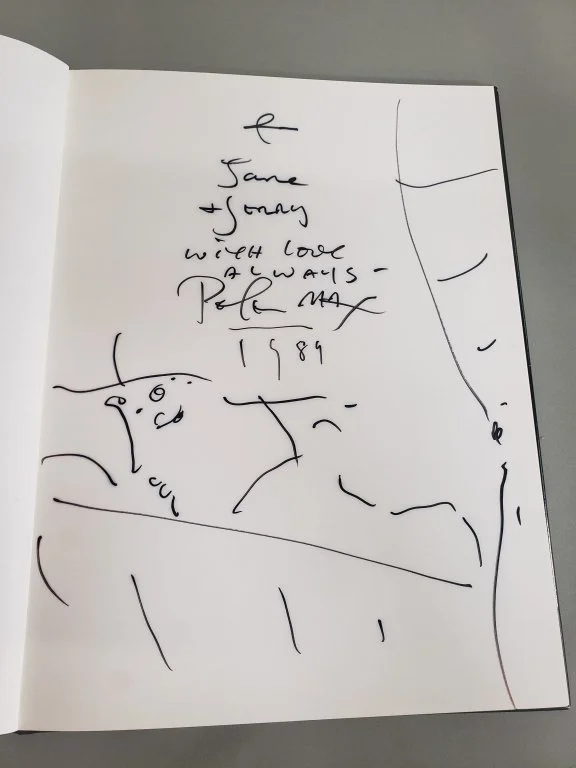 Jane
+ Jerry
WITH LOVE
ALWAYS -
Peter MAX
1989